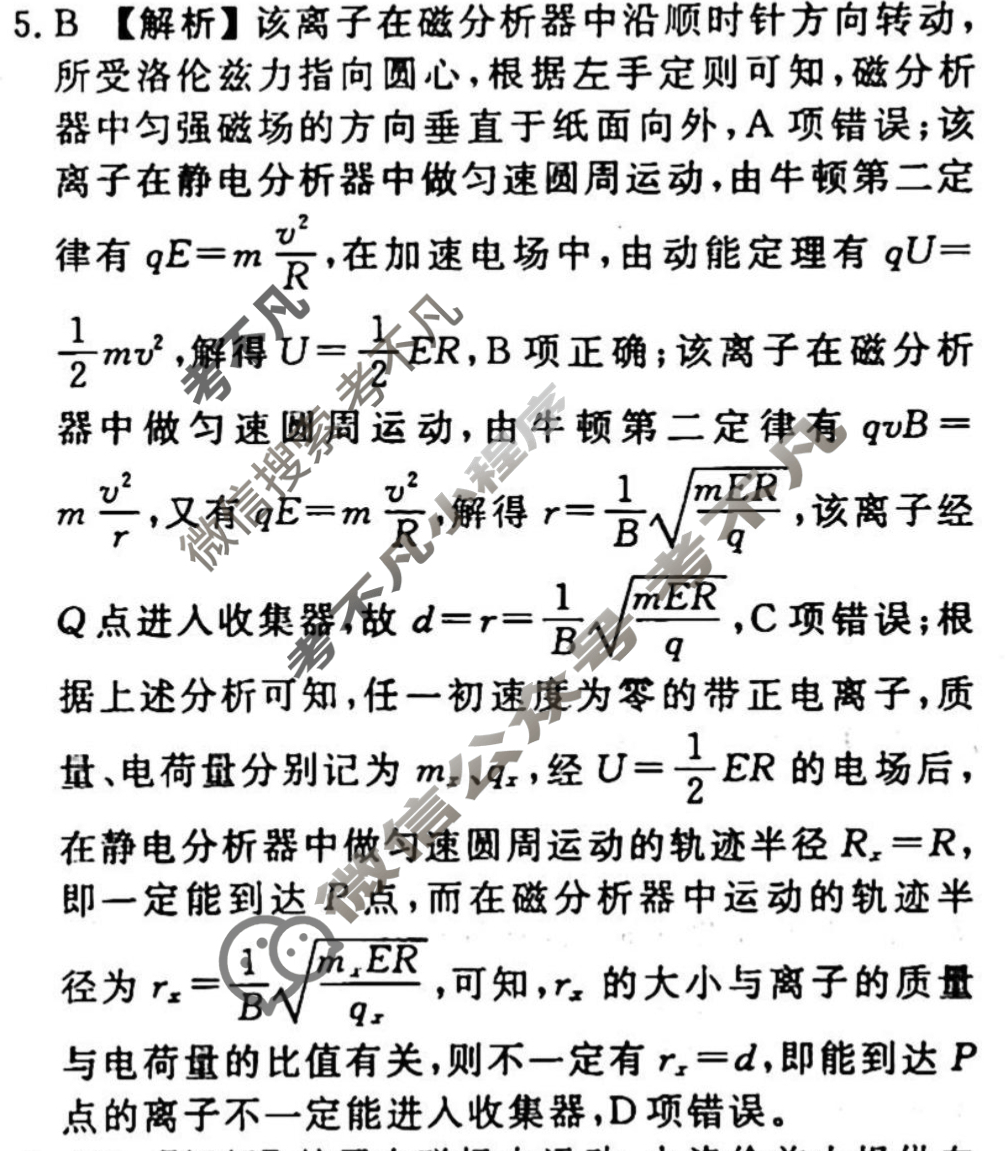 5. B 【解析】该离子在磁分析器中沿顺时针方向转动，
所受洛伦兹力指向圆心，根据左手定则可知，磁分析
器中匀强磁场的方向垂直于纸面向外，A 项错误；该
离子在静电分析器中做匀速圆周运动，由牛顿第二定
律有 qE＝m v²/R，在加速电场中，由动能定理有 qU＝
1/2 mv²，解得 U＝1/2 ER，B 项正确；该离子在磁分析
器中做匀速圆周运动，由牛顿第二定律有 qvB＝
m v²/r，又有 qE＝m v²/R，解得 r＝1/B √(mER/q)，该离子经
Q 点进入收集器，故 d＝r＝1/B √(mER/q)，C 项错误；根
据上述分析可知，任一初速度为零的带正电离子，质
量、电荷量分别记为 mₓ、qₓ，经 U＝1/2 ER 的电场后，
在静电分析器中做匀速圆周运动的轨迹半径 Rₓ＝R，
即一定能到达 P 点，而在磁分析器中运动的轨迹半
径为 rₓ＝1/B √(mₓER/qₓ)，可知，rₓ 的大小与离子的质量
与电荷量的比值有关，则不一定有 rₓ＝d，即能到达 P
点的离子不一定能进入收集器，D 项错误。
考不凡
微信搜索 考不凡
考不凡小程序
微信公众号 考不凡